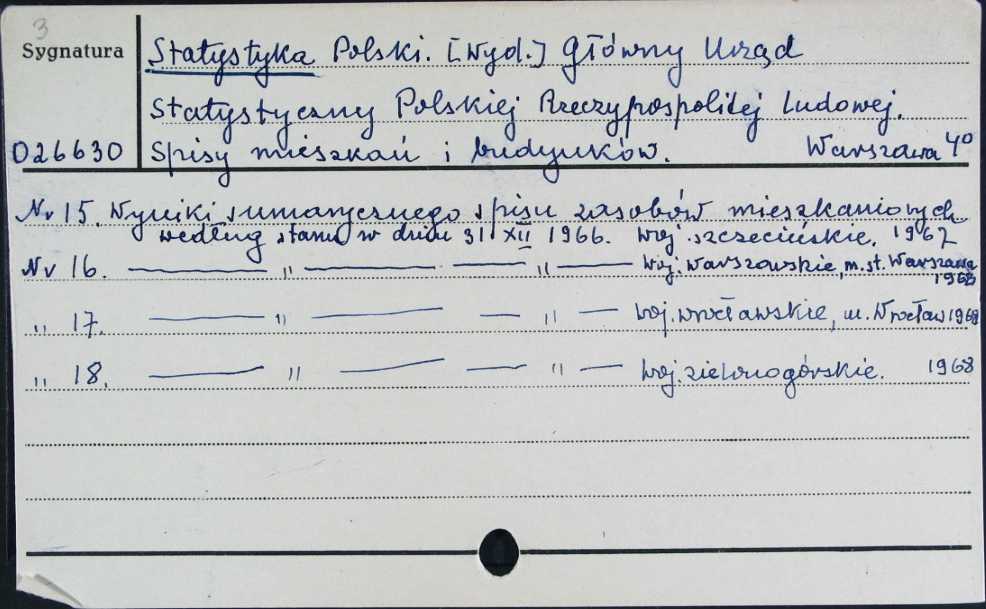 3
Sygnatura
Statystyka Polski. [Wyd.] Główny Urząd
Statystyczny Polskiej Rzeczypospolitej Ludowej.
D26630 Spisy mieszkań i budynków. Warszawa 4°
Nr 15. Wyniki sumarycznego spisu zasobów mieszkaniowych
według stanu w dniu 31 XII 1966. Woj. szczecińskie. 1967
Nr 16. — " — — " — Woj. warszawskie, m.st. Warszawa
1968
" 17. — " — — " — Woj. wrocławskie, m. Wrocław 1968
" 18. — " — — " — Woj. zielonogórskie. 1968